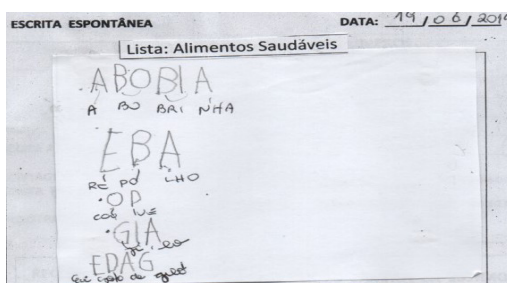 ESCRITA ESPONTÂNEA DATA: 19/06/2019
Lista: Alimentos Saudáveis
ABOBIA
A BO BRI NHA
EBA
RÉ PO LHO
OP
COU VE
GIA
EDAG
Eu gosto de